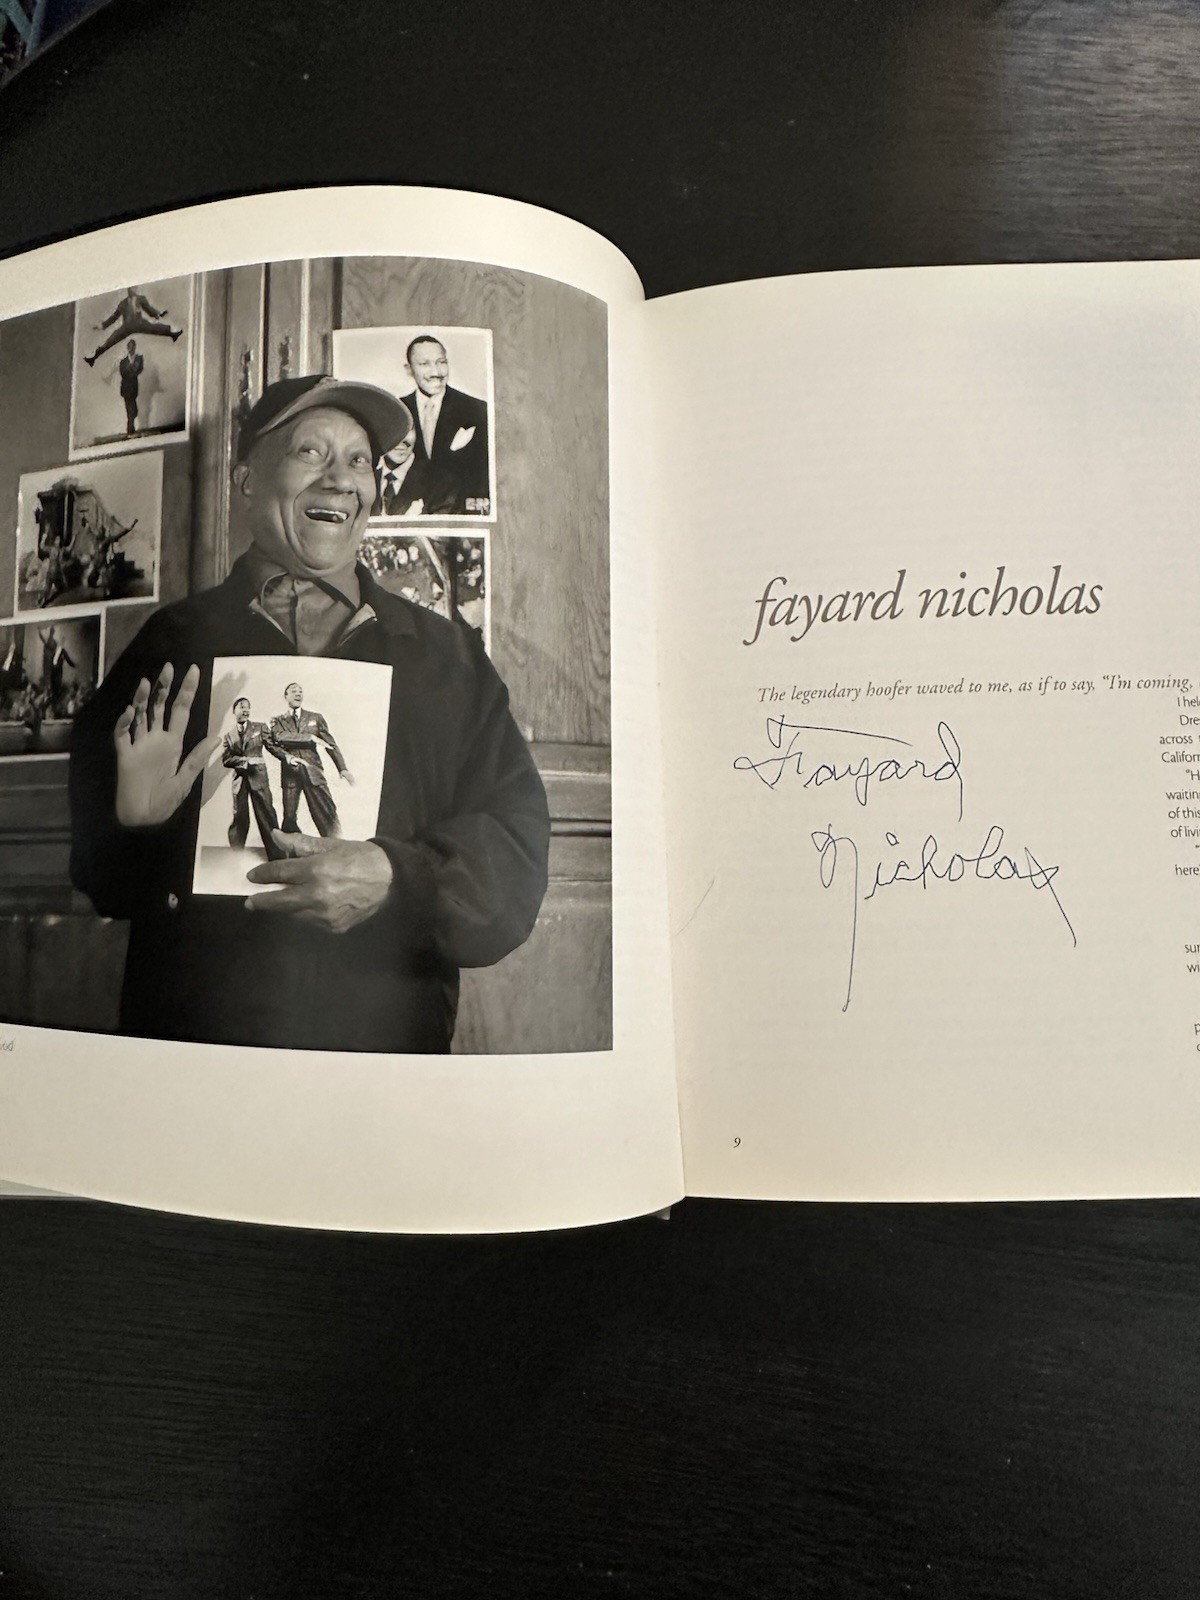 fayard nicholas
The legendary hoofer waved to me, as if to say, "I'm coming,
Fayard
Nicholas
I hel
Dre
across
Califor
"H
waitin
of this
of livi
"
here
sur
wi
9